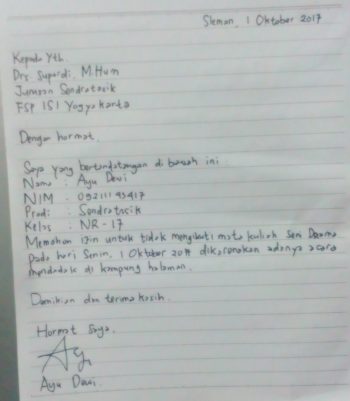 Sleman, 1 Oktober 2017
Kepada Yth.
Drs Supardi, M.Hum
Jurusan Sendratasik
FSP ISI Yogyakarta
Dengan hormat.
Saya yang bertandatangan di bawah ini :
Nama : Ayu Dewi
NIM : 09211145417
Prodi : Sendratasik
Kelas : NR-17
Memohon izin untuk tidak mengikuti mata kuliah Seni Drama
pada hari Senin, 1 Oktober 2017 dikarenakan adanya acara
mendadak di kampung halaman.
Demikian dan terima kasih.
Hormat Saya,
Ayu Dewi